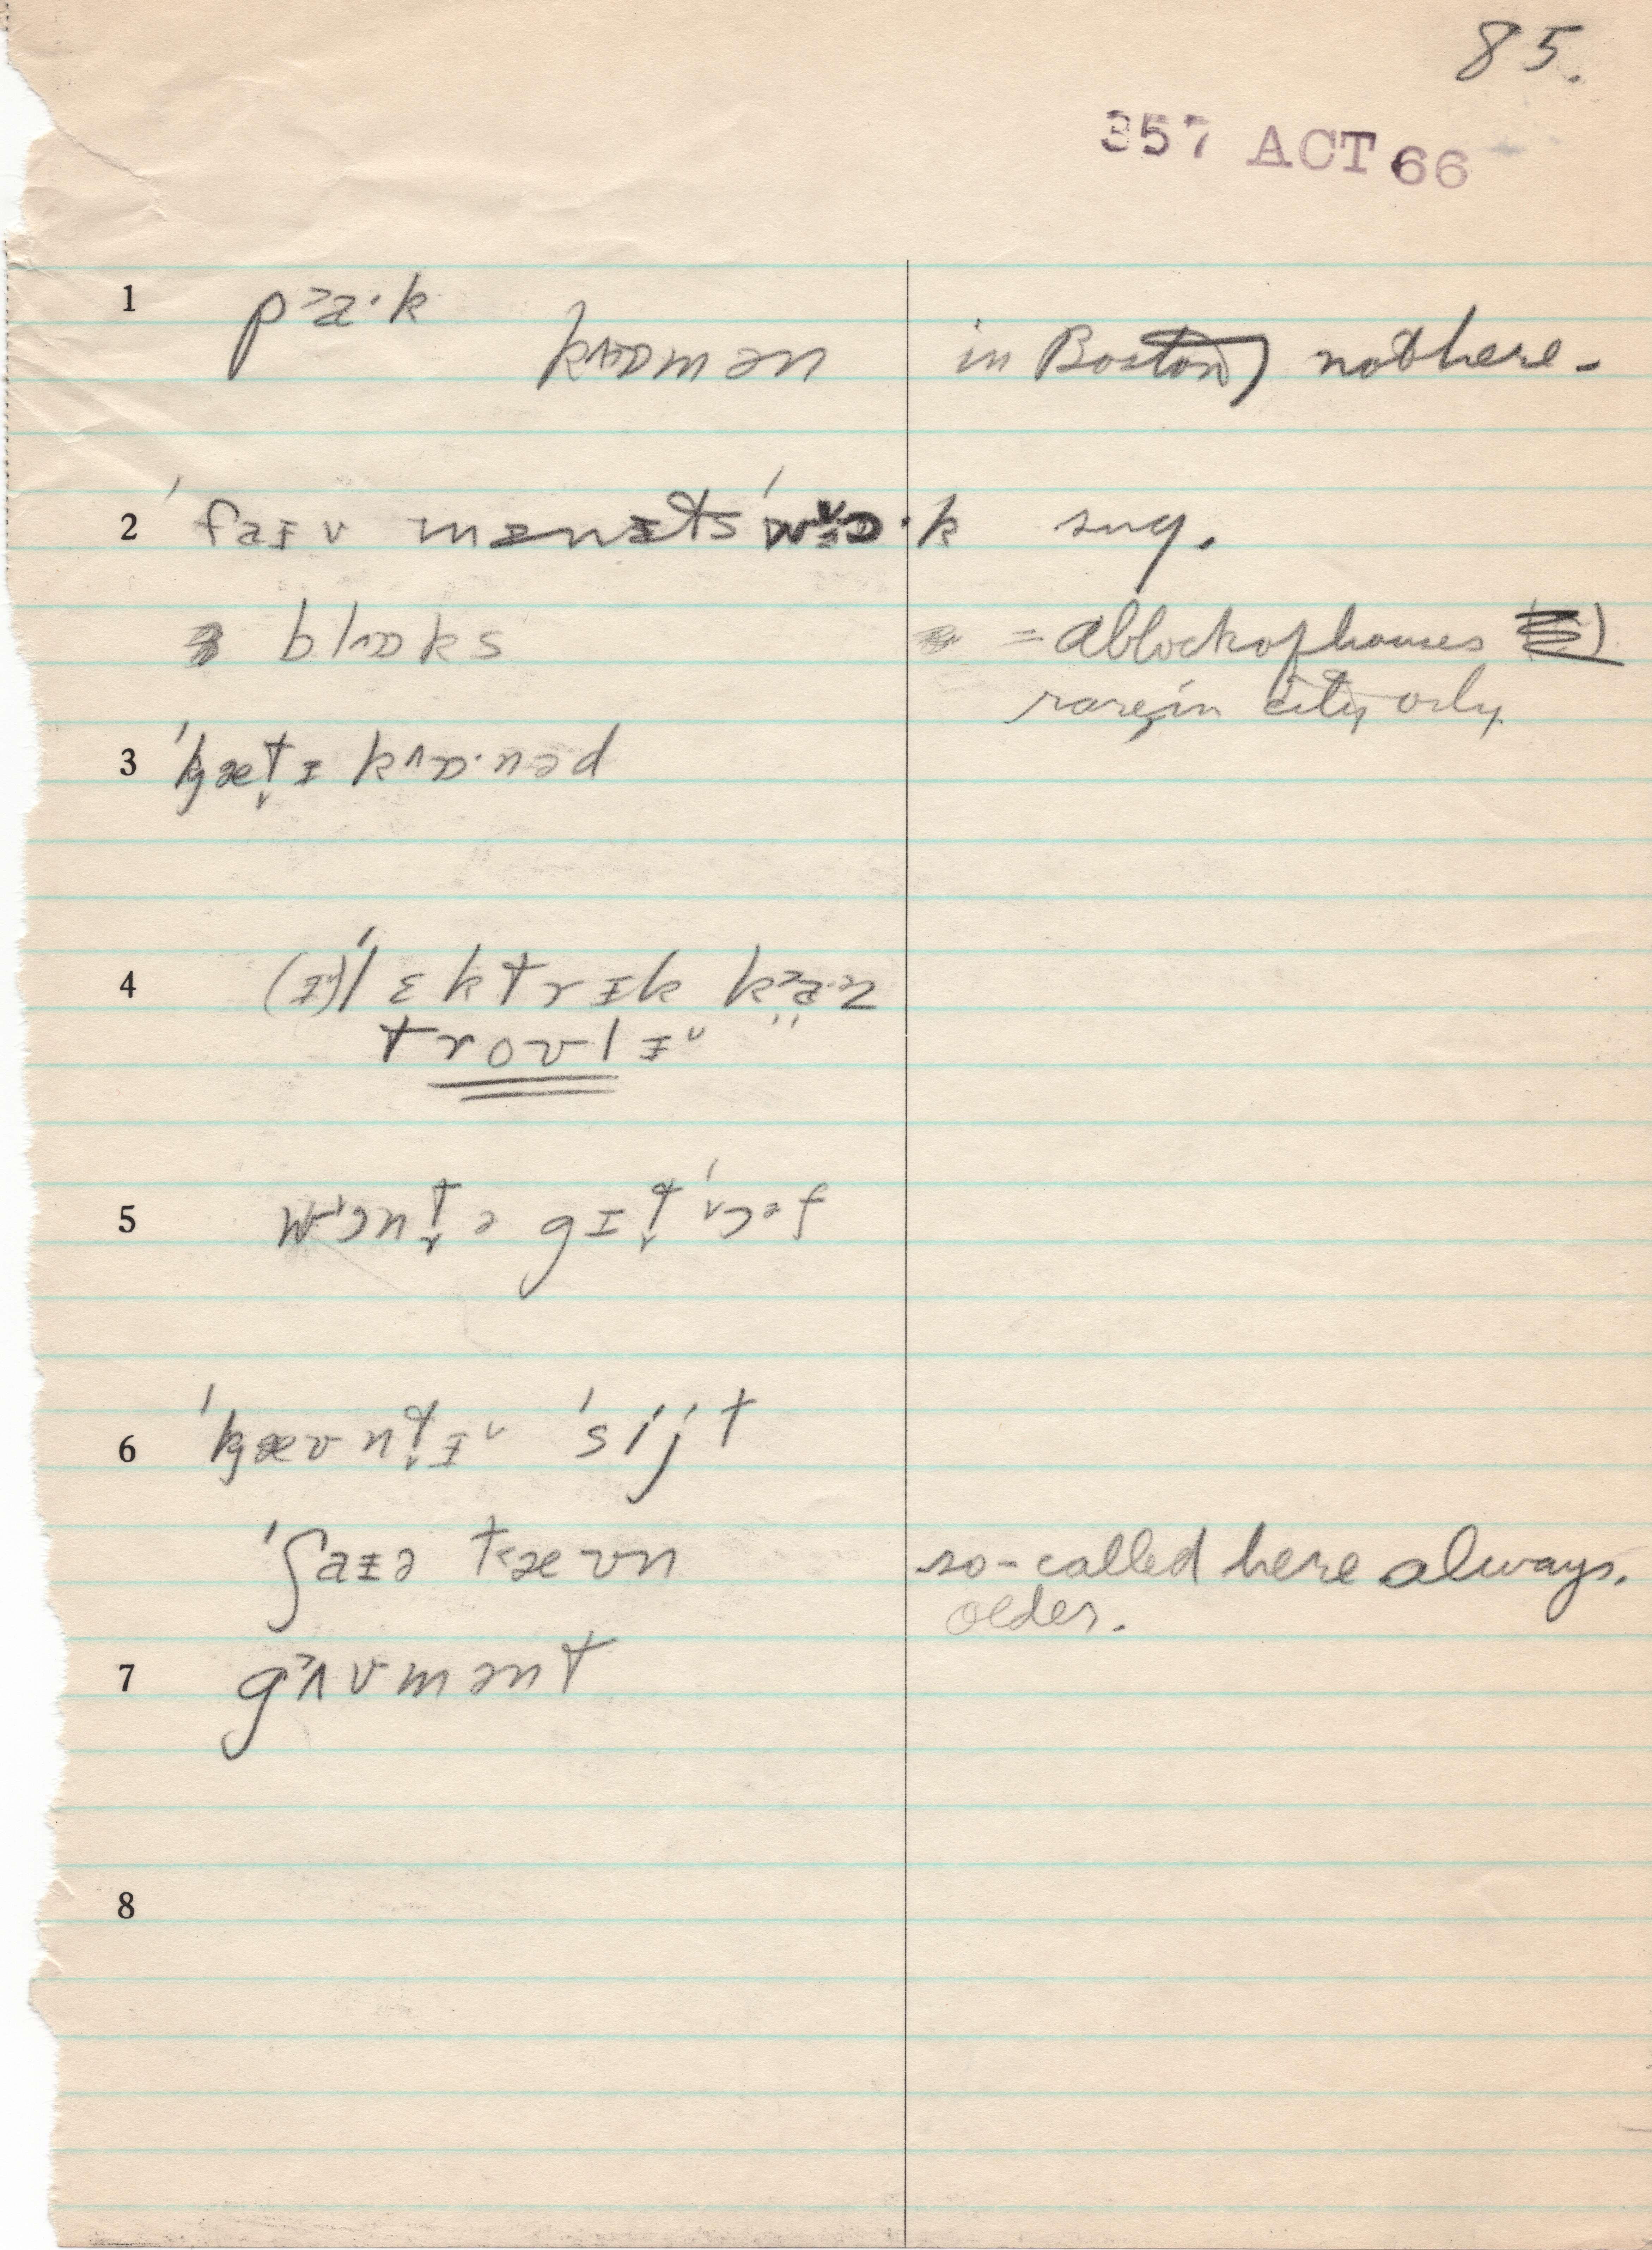 85.
357 ACT 66
1 p˃a·k
k^ɒmən in Boston, not here -
2 ˈfaɪv mɪnɪts ˈwɒ·k sug.
blɒks = a block of houses
rare, in city only
3 ˈkæt̬ɪ k^ɒ·nəd
4 (ɪ)ˈlɛktrɪk k˃a·əz
trovlɪ˅ "
5 wɔnt̬ ə gɪt̬ ˈɔəf
6 ˈkæʊnt̬ɪ˅ ˈsijt
ˈʃaɪə t˂æʊn so-called here always.
older.
7 g˃ʌvmənt
8